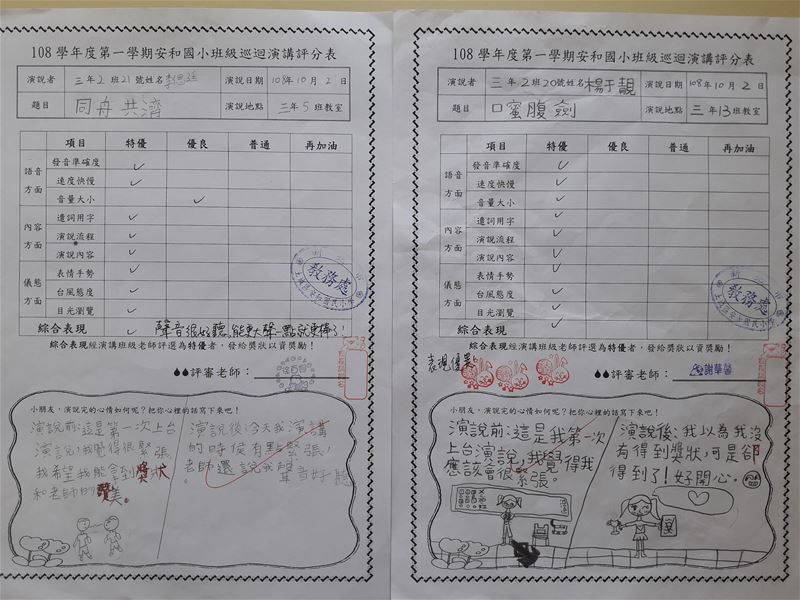 108 學年度第一學期安和國小班級巡迴演講評分表
演說者 三年2班21號姓名 演說日期 108年10月2日
題目 同舟共濟 演說地點 三年5班教室
項目 特優 優良 普通 再加油
語音方面
發音準確度 ✓
速度快慢 ✓
音量大小 ✓
內容方面
遣詞用字 ✓
演說流程 ✓
演說內容 ✓
儀態方面
表情手勢 ✓
台風態度 ✓
目光瀏覽 ✓
綜合表現 ✓ 聲音很好聽,能更大聲一點就更棒了!
教務處
綜合表現經演講班級老師評選為特優者,發給獎狀以資獎勵!
評審老師:
小朋友,演說完的心情如何呢?把你心裡的話寫下來吧!
演說前:這是第一次上台
演說,我覺得很緊張,
我希望我能拿到獎狀
和老師的讚美。
演說後:今天我演講
的時侯有點緊張,
老師還說我聲音好聽
。
108 學年度第一學期安和國小班級巡迴演講評分表
演說者 三年2班20號姓名楊于靚 演說日期 108年10月2日
題目 口蜜腹劍 演說地點 三年13班教室
項目 特優 優良 普通 再加油
語音方面
發音準確度 ✓
速度快慢 ✓
音量大小 ✓
內容方面
遣詞用字 ✓
演說流程 ✓
演說內容 ✓
儀態方面
表情手勢 ✓
台風態度 ✓
目光瀏覽 ✓
綜合表現 ✓
教務處
綜合表現經演講班級老師評選為特優者,發給獎狀以資獎勵!
表現優異!
評審老師:
小朋友,演說完的心情如何呢?把你心裡的話寫下來吧!
演說前:這是我第一次
上台演說,我覺得我
應該會很緊張。
演說後:我以為我沒
有得到獎狀,可是卻
得到了!好開心。